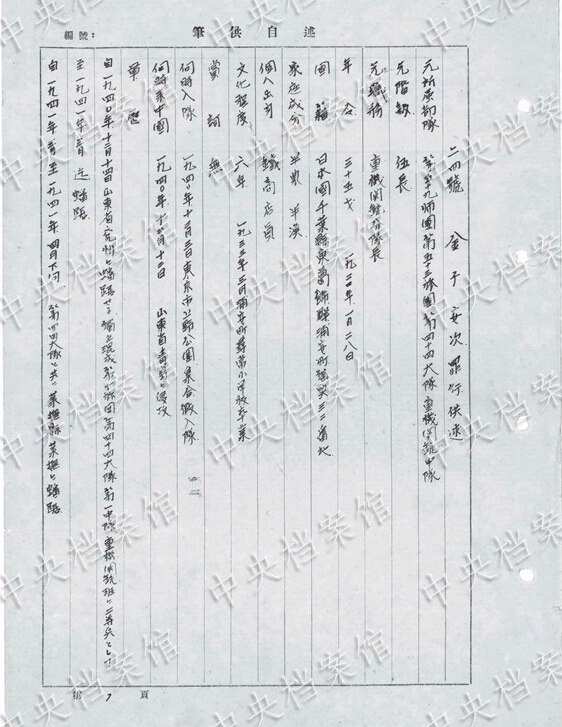 述自供筆
編號:
二四號 金子安次 罪行供述
元所屬部隊 第五十九師團第五十三旅團第四十四大隊重機関銃中隊
元階級 伍長
元職務 重機関銃分隊長
年令 三十五才 一九二〇年一月二八日
國籍 日本國千葉縣東葛飾郡浦安町猫実三二番地
家庭成分 半農 半漁
個人出身 鐵商店員
文化程度 六年 一九三三年三月浦安町尋常小学校卒業
賞詞 無
何時入隊 一九四〇年十一月三日東京市上野公園集合徴入隊
何時來中國 一九四〇年十二月十二日 山東省青島ニ侵攻
軍歴
自一九四〇年十二月十四日山東省兗州ニ蟠踞セル獨立混成第十旅團第四十四大隊第一中隊重機関銃班ニ二等兵トシテ
至一九四一年二月迄蟠踞
自一九四一年二月至一九四一年四月下旬 第四十四大隊ト共ニ萊蕪縣萊蕪ニ蟠踞
第 7 頁
中央档案馆